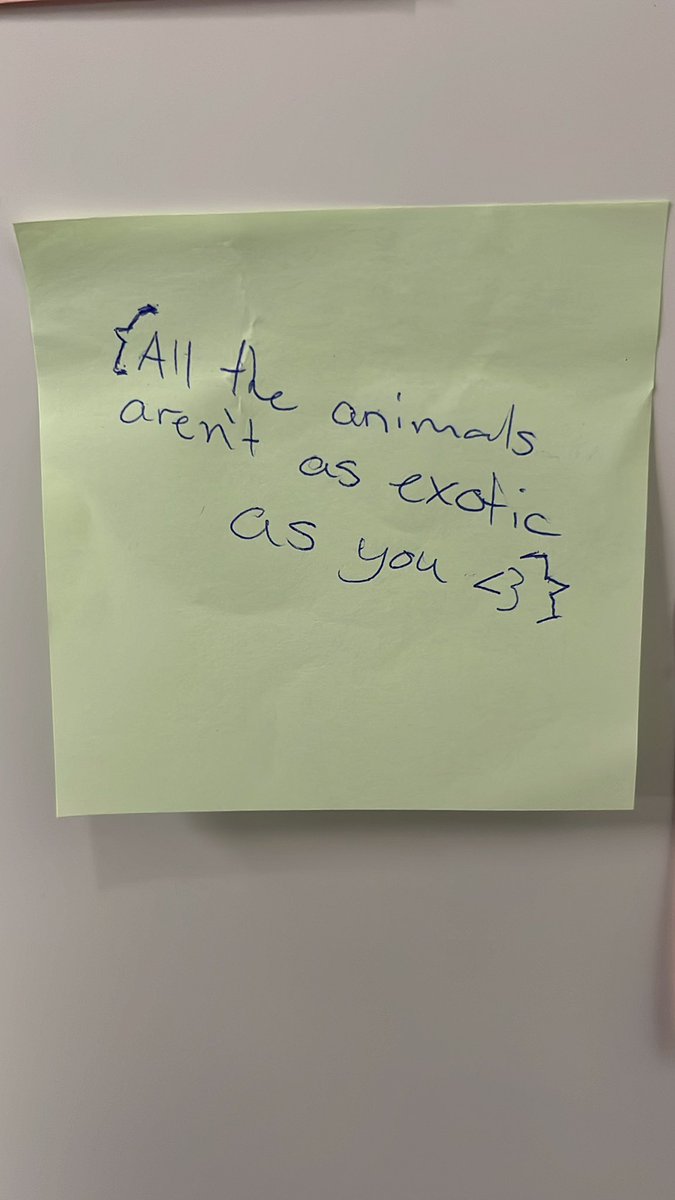 {All the animals
aren't as exotic
as you <3}